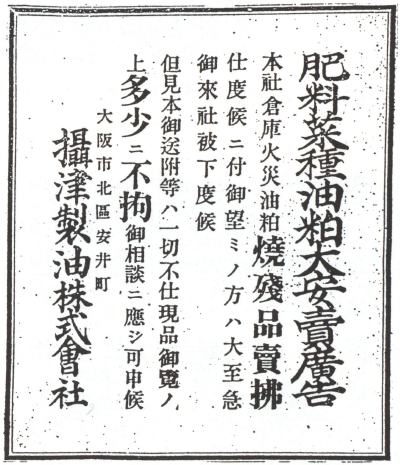 肥料菜種油粕大安賣廣告
本社倉庫火災油粕燒殘品賣拂
仕度候ニ付御望ミノ方ハ大至急
御來社被下度候
但見本御送附等ハ一切不仕現品御覽ノ
上多少ニ不拘御相談ニ應シ可申候
大阪市北區安井町
攝津製油株式會社